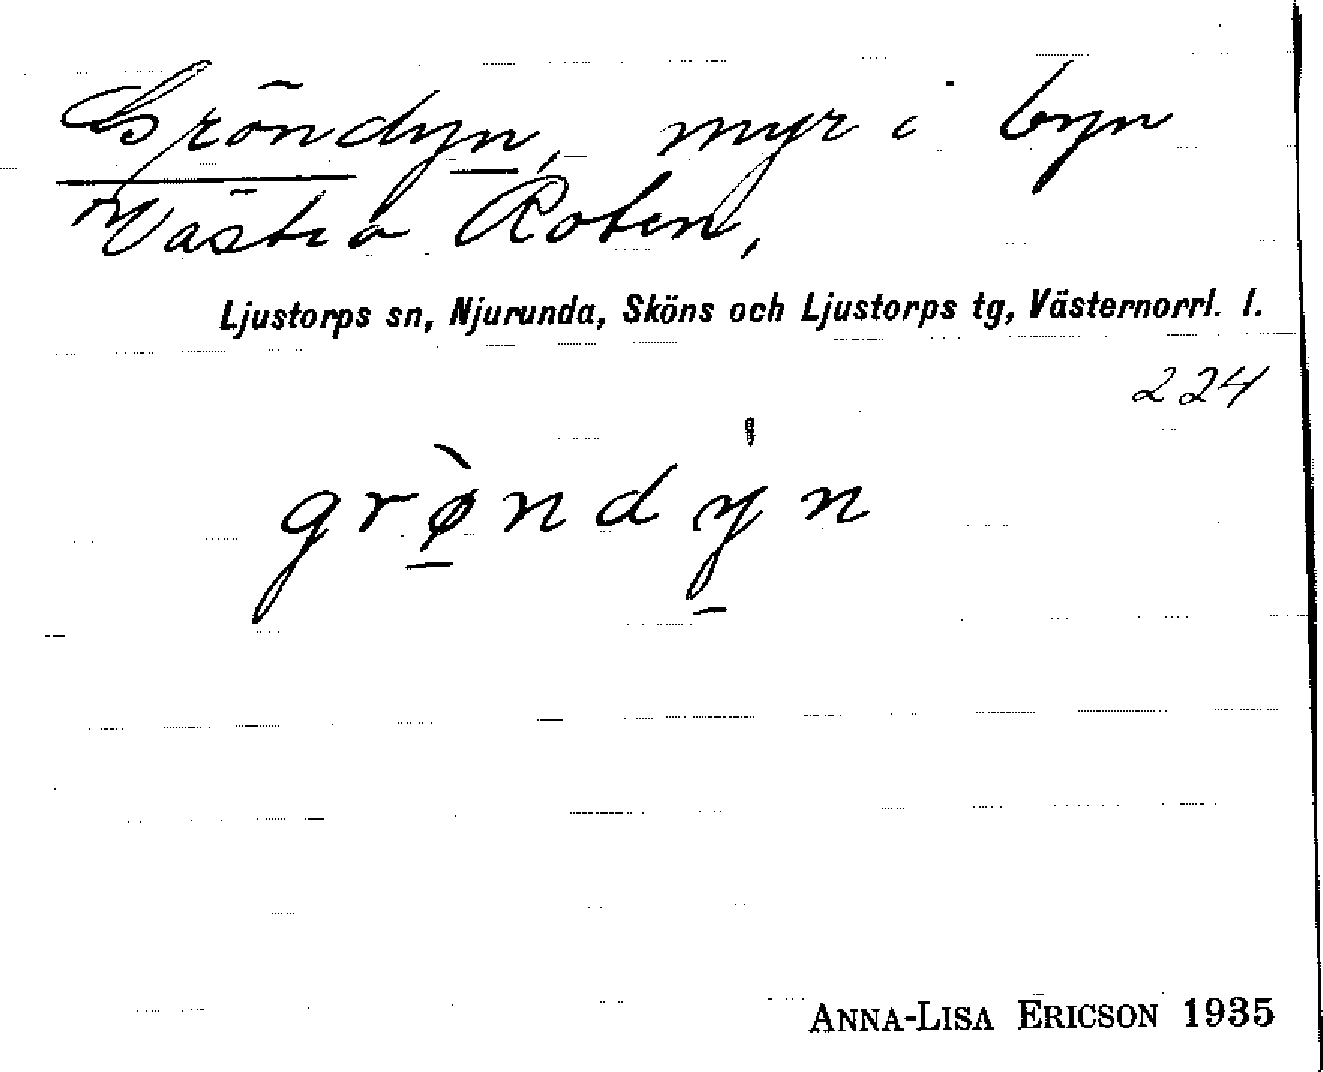 Gröndyn, myr i byn
Västra Roten,
Ljustorps sn, Njurunda, Sköns och Ljustorps tg, Västernorrl. l.
224
grø̀ndyn
ANNA-LISA ERICSON 1935